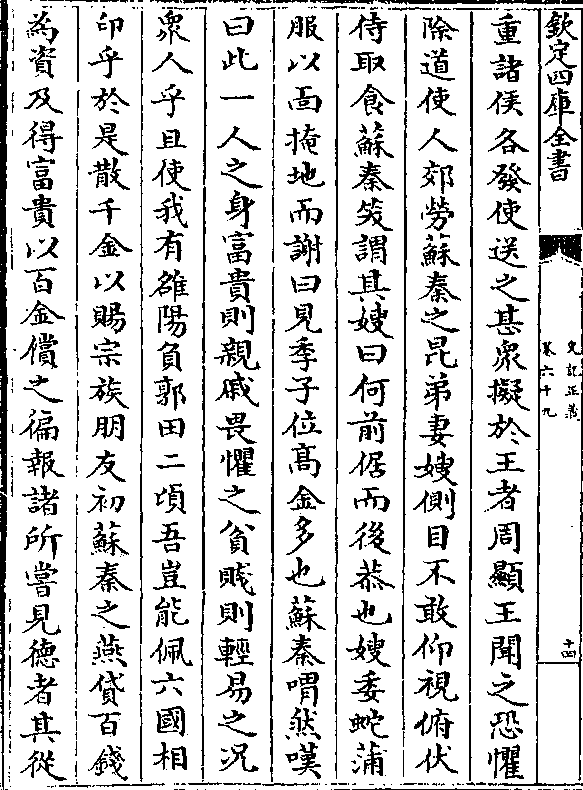 欽定四庫全書
史記正義
卷六十九
十四
重諸侯各發使送之甚衆擬於王者周顯王聞之恐懼
除道使人郊勞蘇秦之昆弟妻嫂側目不敢仰視俯伏
侍取食蘇秦笑謂其嫂曰何前倨而後恭也嫂委蛇蒲
服以面掩地而謝曰見季子位髙金多也蘇秦喟然嘆
曰此一人之身富貴則親戚畏懼之貧賤則輕易之況
衆人乎且使我有雒陽負郭田二頃吾豈能佩六國相
印乎於是散千金以賜宗族朋友初蘇秦之燕貸百錢
為資及得富貴以百金償之徧報諸所嘗見德者其從